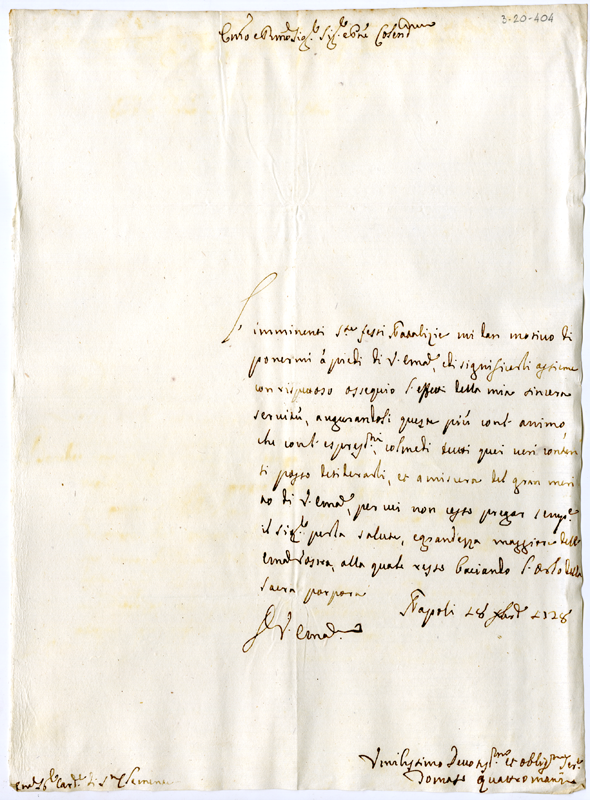 3-20-404
Em.o e R.mo Sig.re Sig.re e P.ne Colend.mo
L'imminenti S.te feste Natalizie mi dan motivo di
ponermi à piedi di V. Em.a, e di significarli assieme
con rispettoso ossequio l'effetti della mia sincera
servitù, augurandosi queste più cont' animo,
che cont' espres.ni, colme di tutti quei veri conten
ti posso desiderarli, et a misura del gran meri
to di V. Em.a, per cui non cesso pregar semp.e
il Sig.re per la salute, e grandezza maggiore dell'
Em.a Vostra, alla quale resto baciando l'orlo della
sacra porpora
Napoli 18 1728
D. V. Em.a
Umilissimo Devotis.mo et oblig.mo Ser.e
Tomaso Quattromani
Em.o S.r Card.e di S.